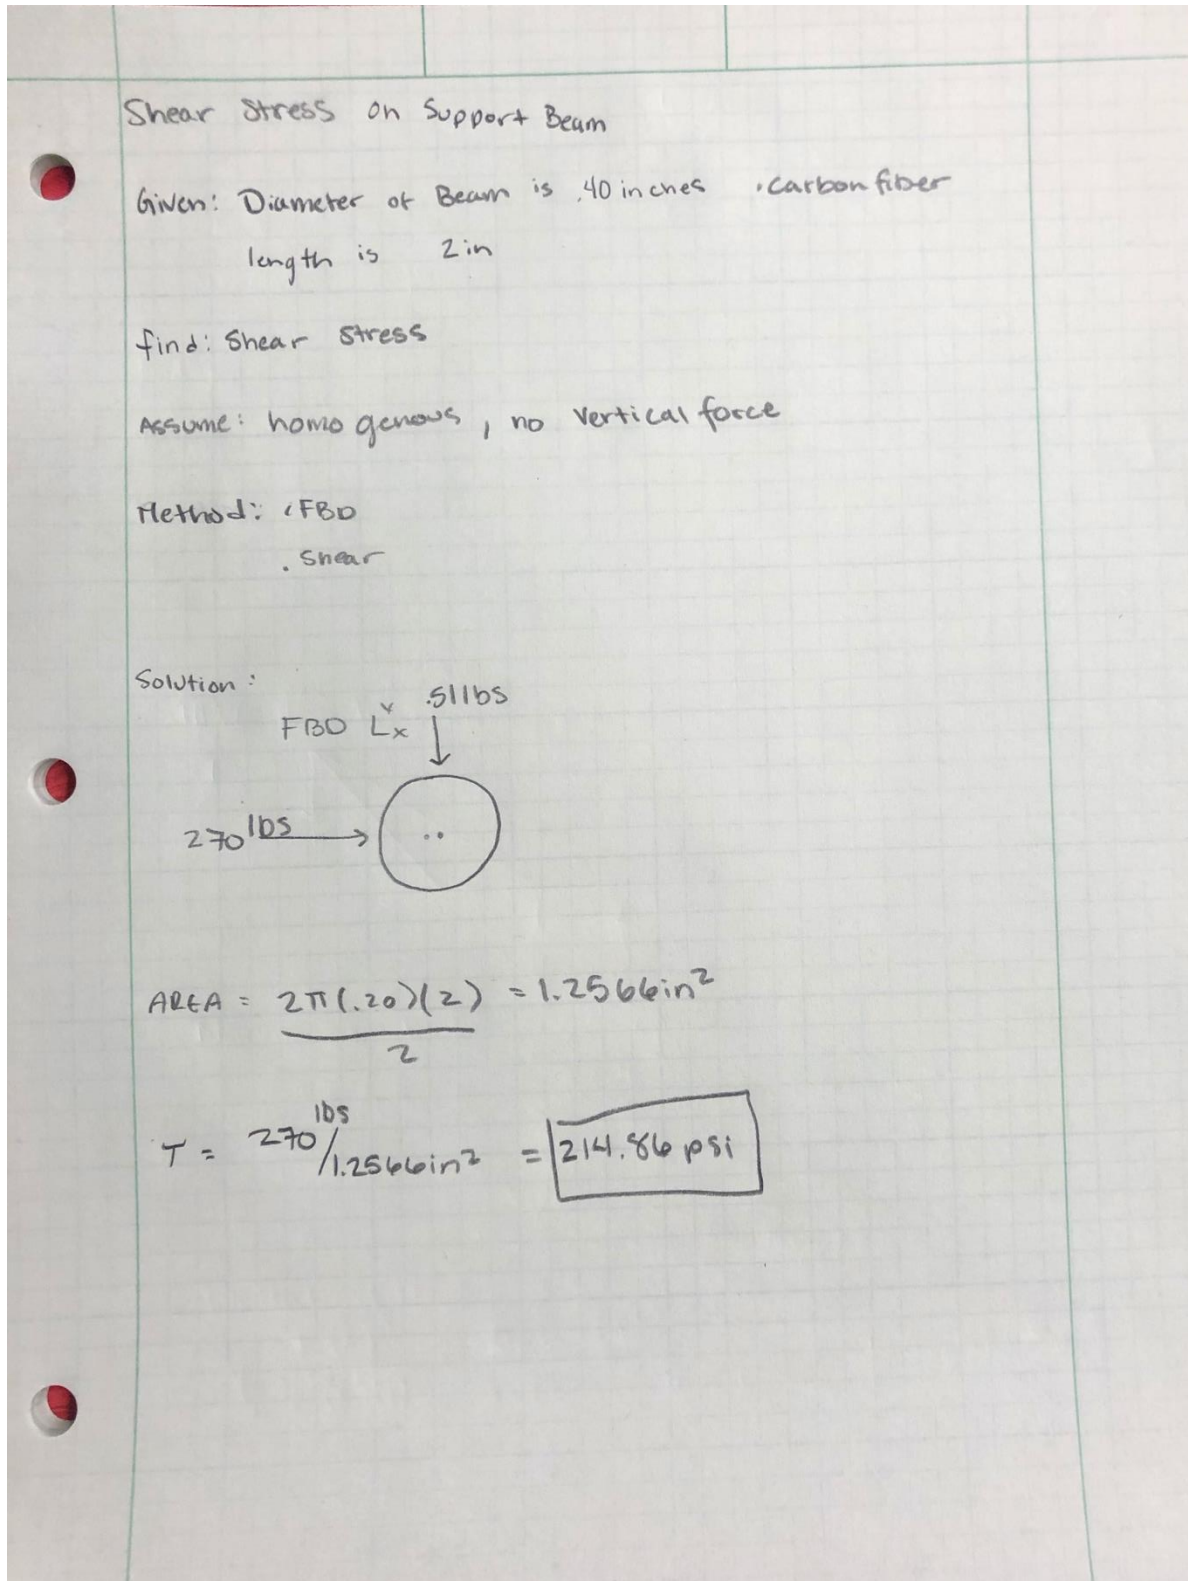 Shear Stress on Support Beam
Given: Diameter of Beam is .40 inches · carbon fiber
length is 2 in
find: Shear Stress
Assume: homogenous, no vertical force
Method: · FBD
· Shear
Solution:
.51 lbs
FBD
y
x
270 lbs
AREA = 2π(.20)(2) = 1.2566 in²
2
T = 270 lbs / 1.2566 in² = 214.86 psi